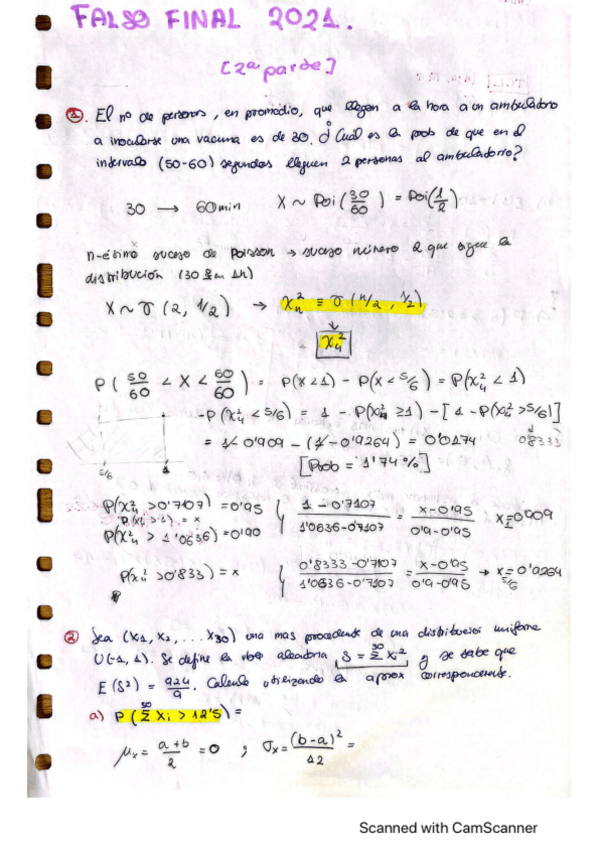 FALSO FINAL 2021.
[2ª parte]
1. El nº de personas, en promedio, que llegan a la hora a un ambulatorio
a inocularse una vacuna es de 30. ¿Cual es la prob de que en el
intervalo (50-60) segundos lleguen 2 personas al ambulatorio?
30 → 60min X ~ Poi(30/60) = Poi(1/2)
n-ésimo suceso de Poisson → suceso número 2 que sigue la
distribución (30 en 1h)
X ~ σ(2, 1/2) → χ²n ≡ σ(n/2, 1/2)
χ²4
P(50/60 < X < 60/60) = P(X<1) - P(X<5/6) = P(χ²4 < 1)
-P(χ²4 < 5/6) = 1 - P(χ²4 ≥1) - [1 - P(χ²4 >5/6)]
= 1 - 0'909 - (1 - 0'9264) = 0'0174 0'8333
[Prob = 1'74%]
5/6 1
P(χ²4 >0'7107) = 0'95 { (1 - 0'7107)/(1'0636-0'7107) = (x-0'95)/(0'9-0'95) x=0'909
P(χ²4 >1) = x
P(χ²4 > 1'0636) = 0'90
P(χ²4 >0'833) = x { (0'8333-0'7107)/(1'0636-0'7107) = (x-0'95)/(0'9-0'95) → x=0'9264
2. Sea (X1, X2, ... X30) una mas procedente de una distribución uniforme
U(-1, 1). Se define la vble aleatoria S = Σ³⁰ Xi² y se sabe que
E(S²) = 924/9. Calcule utilizando la aprox correspondiente.
a) P(Σ³⁰ Xi > 12'5) =
μx = (a+b)/2 = 0 ; σx = (b-a)²/12 =
Scanned with CamScanner